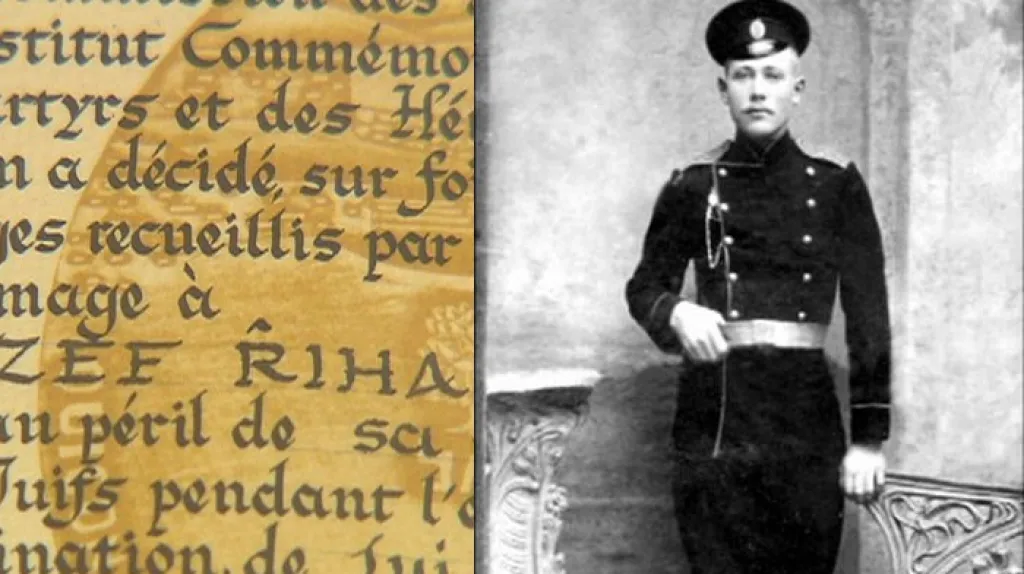 mmission des
stitut Commémo
artyrs et des Hé
n a décidé, sur fo
ges recueillis par
mage à
ZEF ŘIHA
au péril de sa
Juifs pendant l'o
ination de Jui